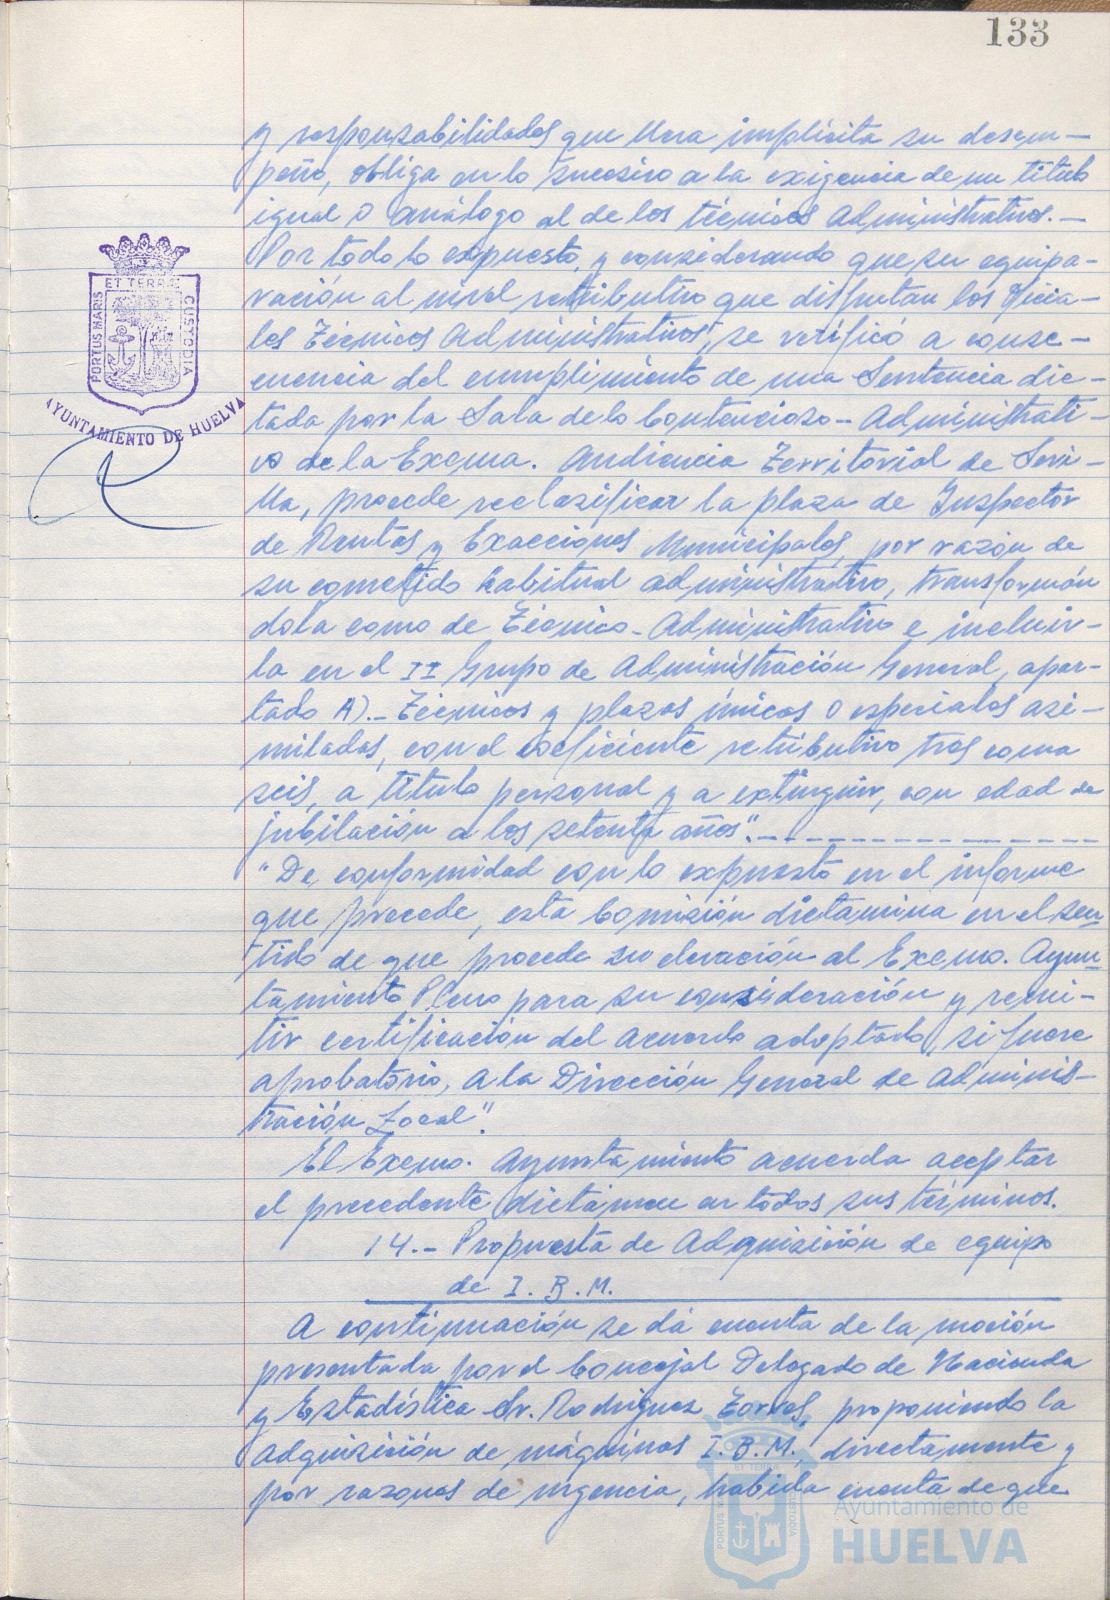 133
y responsabilidades que lleva implícita su desem-
peño, obliga en lo sucesivo a la exigencia de un título
igual o análogo al de los técnicos Administrativos.-
Por todo lo expuesto, y considerando que su equipa-
ración al nivel retributivo que disfrutan los Oficia-
les Técnicos Administrativos, se verificó a conse-
cuencia del cumplimiento de una Sentencia dic-
tada por la Sala de lo Contencioso-Administrati-
vo de la Excma. Audiencia Territorial de Sevi-
lla, procede reclasificar la plaza de Inspector
de Rentas y Exacciones Municipales, por razón de
su cometido habitual administrativo, transformán
dola como de Técnico-Administrativo e incluir-
la en el II Grupo de Administración General, apar-
tado A).- Técnicos y plazas únicas o especiales asi-
miladas, con el coeficiente retributivo tres coma
seis, a título personal y a extinguir, con edad de
jubilación a los setenta años".-
"De conformidad con lo expuesto en el informe
que precede, esta Comisión dictamina en el sen-
tido de que procede su elevación al Excmo. Ayun-
tamiento Pleno para su consideración y remi-
tir certificación del acuerdo adoptado, si fuere
aprobatorio, a la Dirección General de Adminis-
tración Local".
El Excmo. Ayuntamiento acuerda aceptar
el precedente dictamen en todos sus términos.
14.- Propuesta de Adquisición de equipo
de I.B.M.
A continuación se dá cuenta de la moción
presentada por el Concejal Delegado de Hacienda
y Estadística Sr. Rodríguez Torres, proponiendo la
adquisición de máquinas I.B.M., directamente y
por razones de urgencia, habida cuenta de que
PORTUS MARIS
ET TERRA
CUSTODIA
AYUNTAMIENTO DE HUELVA
PORTUS MARIS
ET TERRA
CUSTODIA
Ayuntamiento de
HUELVA